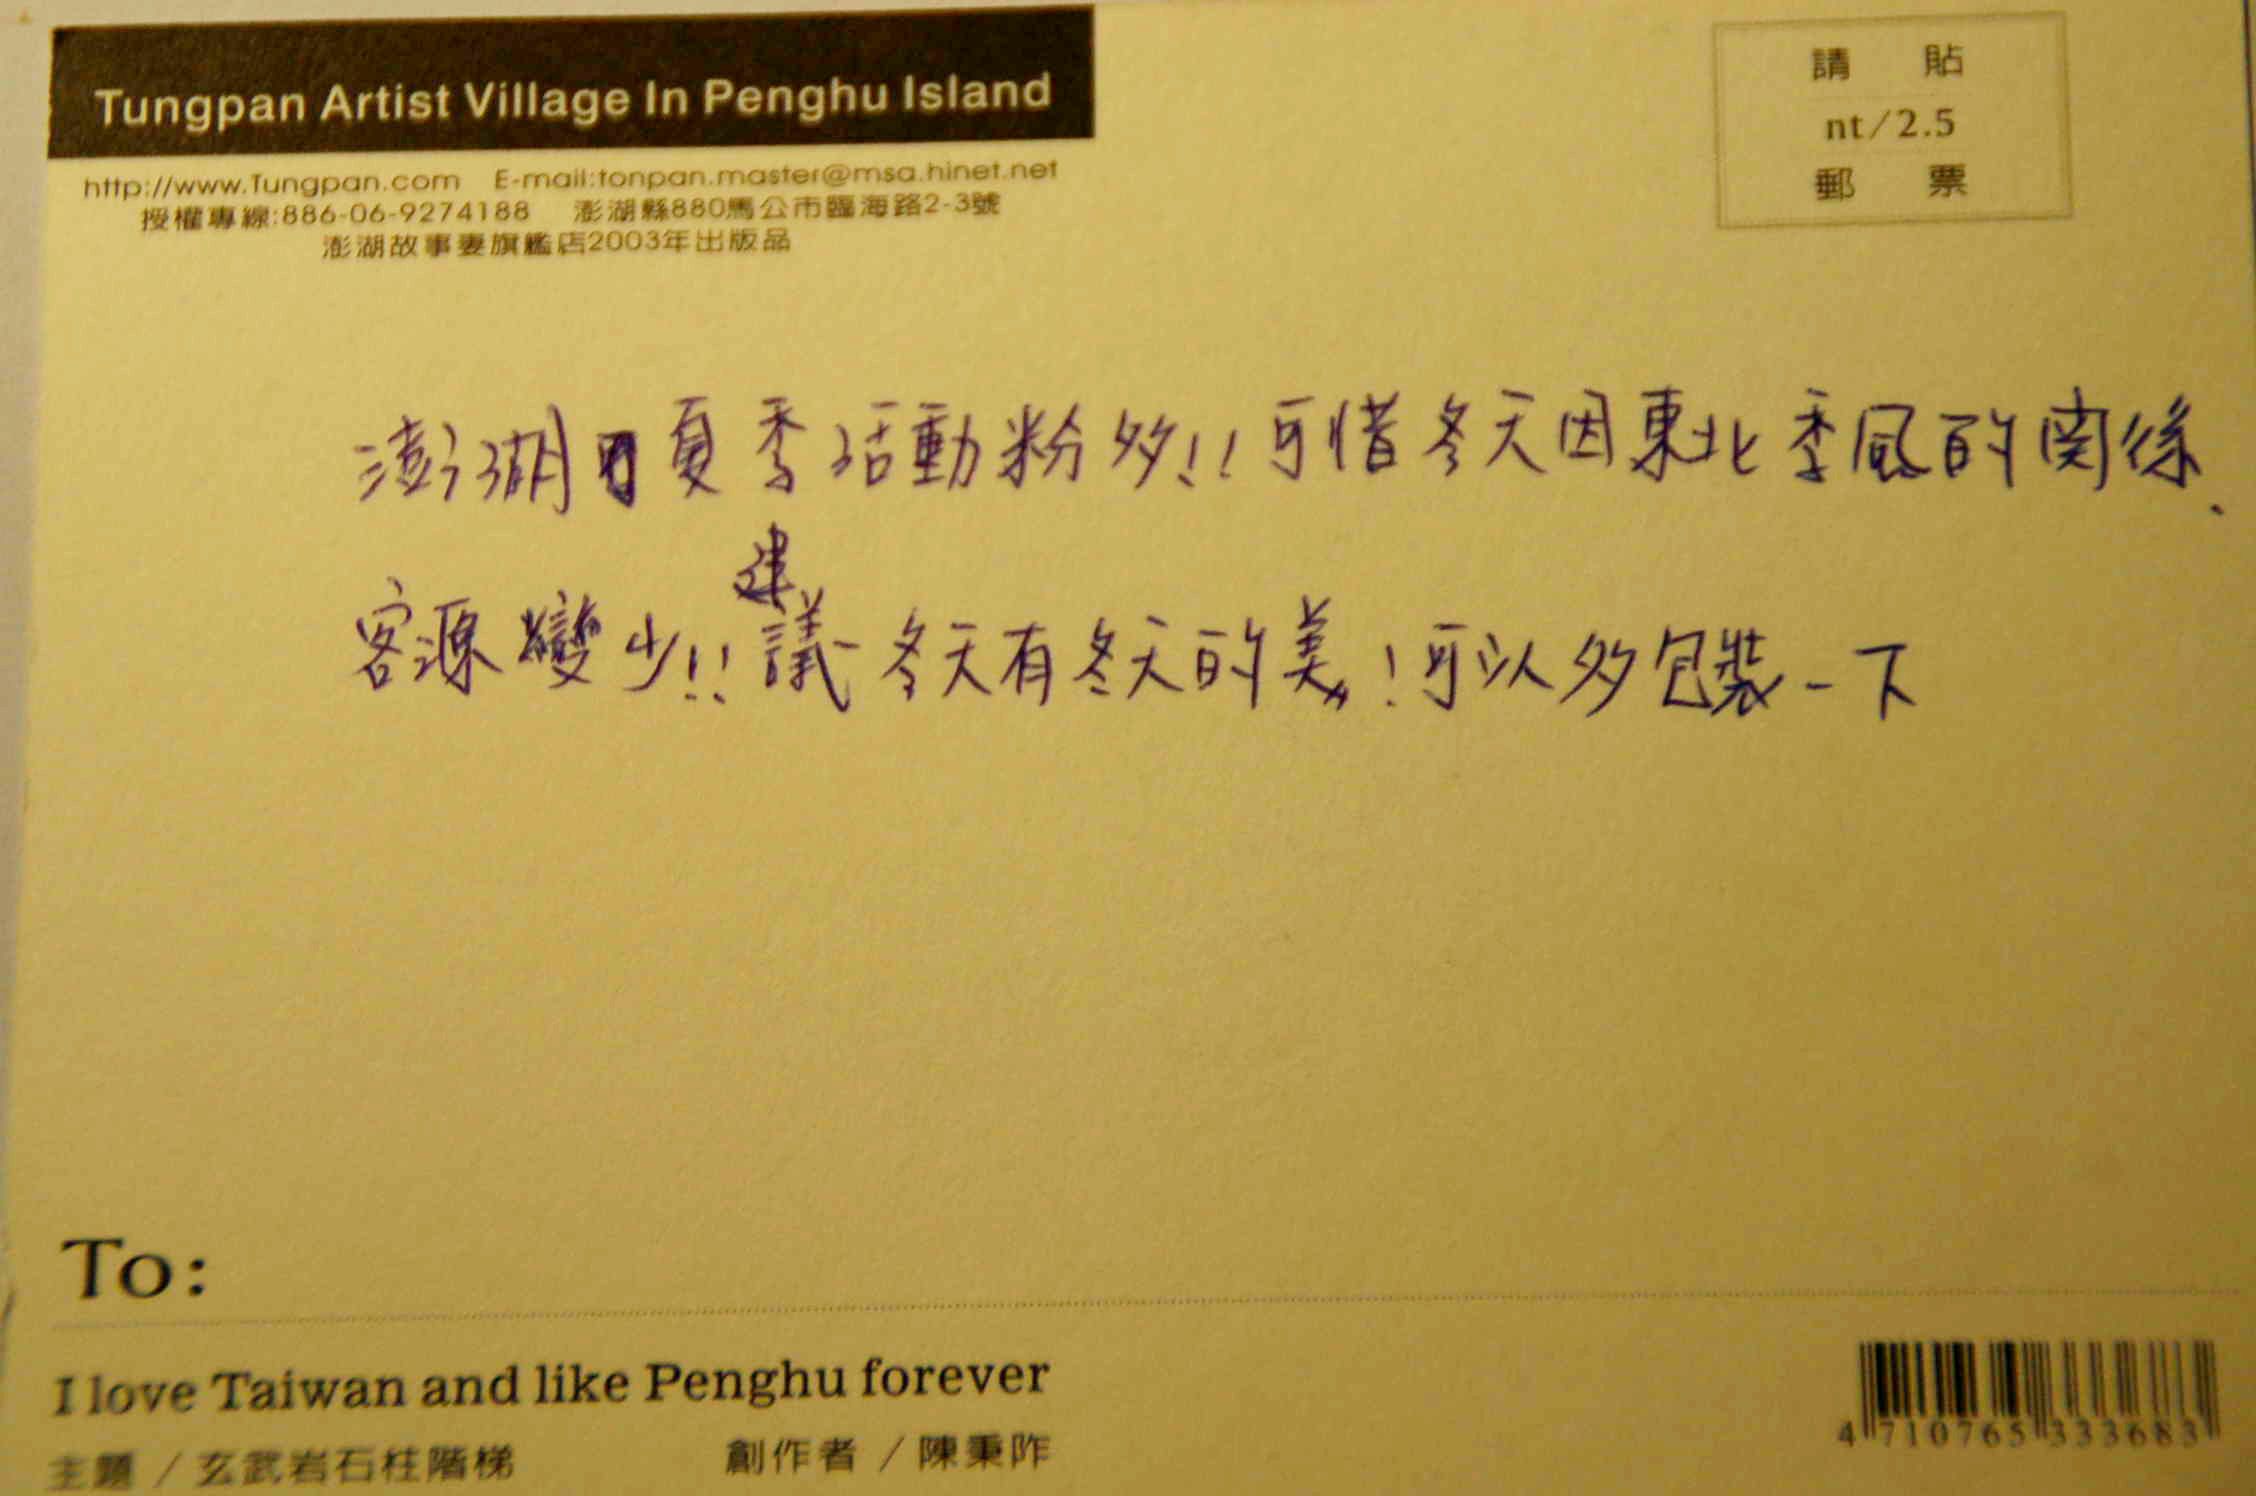 Tungpan Artist Village In Penghu Island
http://www.Tungpan.com E-mail:tonpan.master@msa.hinet.net
授權專線:886-06-9274188 澎湖縣880馬公市臨海路2-3號
澎湖故事妻旗艦店2003年出版品
請 貼
nt/2.5
郵 票
澎湖夏季活動粉多!!可惜冬天因東北季風的関係.
客源變少!!建議冬天有冬天的美!可以多包裝一下
To:
I love Taiwan and like Penghu forever
主題 / 玄武岩石柱階梯 創作者 / 陳秉阼
4 710765 333683